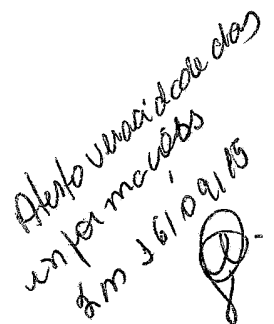 Atesto veracidade das
informações
Em 16/09/15